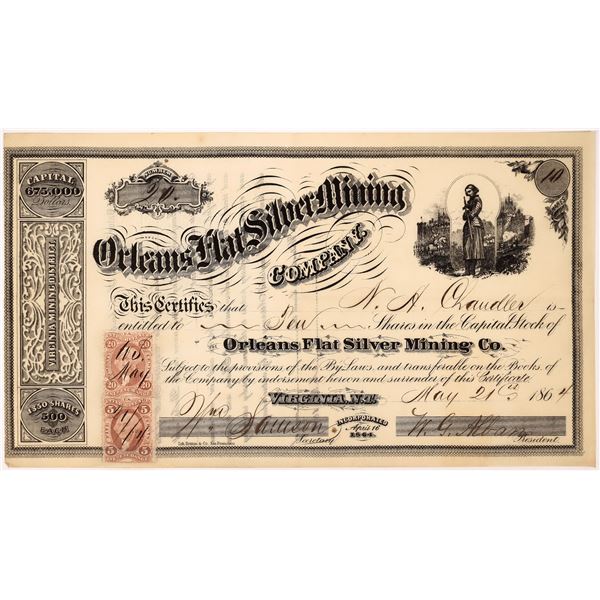 CAPITAL
675,000
Dollars.
NUMBER
10
Orleans Flat Silver Mining
COMPANY
VIRGINIA MINING DISTRICT
This Certifies that N. A. Chandler is
entitled to Ten Shares in the Capital Stock of
Orleans Flat Silver Mining Co.
Subject to the provisions of the By Laws, and transferable on the Books of
the Company by indorsement hereon and surrender of this Certificate.
VIRGINIA, N.T. May 21st 1864
1350 SHARES
500
EACH
20 20
May
20 20
5 5
5 5
Secretary
INCORPORATED
April 16
1864.
W. G.
President.
Lith. Britton & Co. San Francisco.